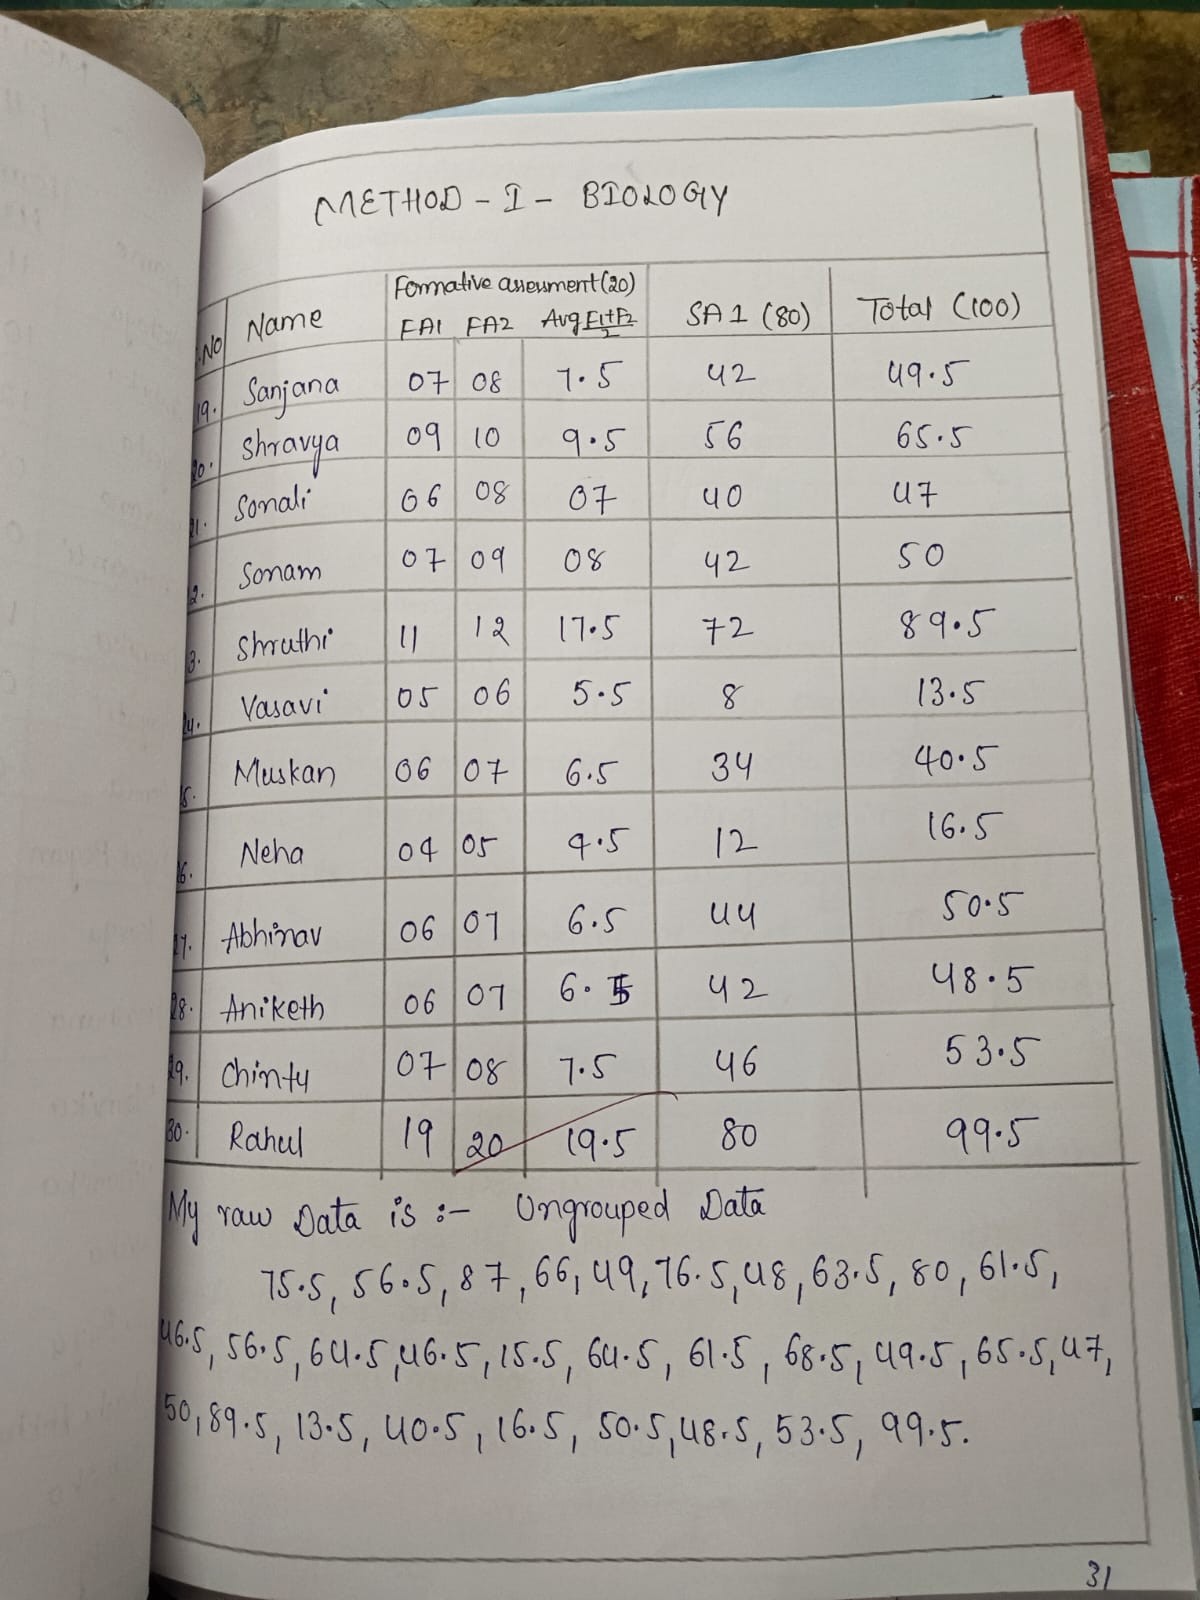 METHOD - I - BIOLOGY
.No Name Formative assessment (20) SA 1 (80) Total (100)
FA1 FA2 Avg F1+F2/2
19. Sanjana 07 08 7.5 42 49.5
20. Shravya 09 10 9.5 56 65.5
21. Sonali 06 08 07 40 47
2. Sonam 07 09 08 42 50
3. Shruthi 11 12 17.5 72 89.5
24. Vasavi 05 06 5.5 8 13.5
25. Muskan 06 07 6.5 34 40.5
26. Neha 04 05 4.5 12 16.5
27. Abhinav 06 07 6.5 44 50.5
28. Aniketh 06 07 6.5 42 48.5
29. Chinty 07 08 7.5 46 53.5
30. Rahul 19 20 19.5 80 99.5
My raw Data is :- Ungrouped Data
75.5, 56.5, 87, 66, 49, 76.5, 48, 63.5, 80, 61.5,
46.5, 56.5, 64.5, 46.5, 15.5, 64.5, 61.5, 68.5, 49.5, 65.5, 47,
50, 89.5, 13.5, 40.5, 16.5, 50.5, 48.5, 53.5, 99.5.
31